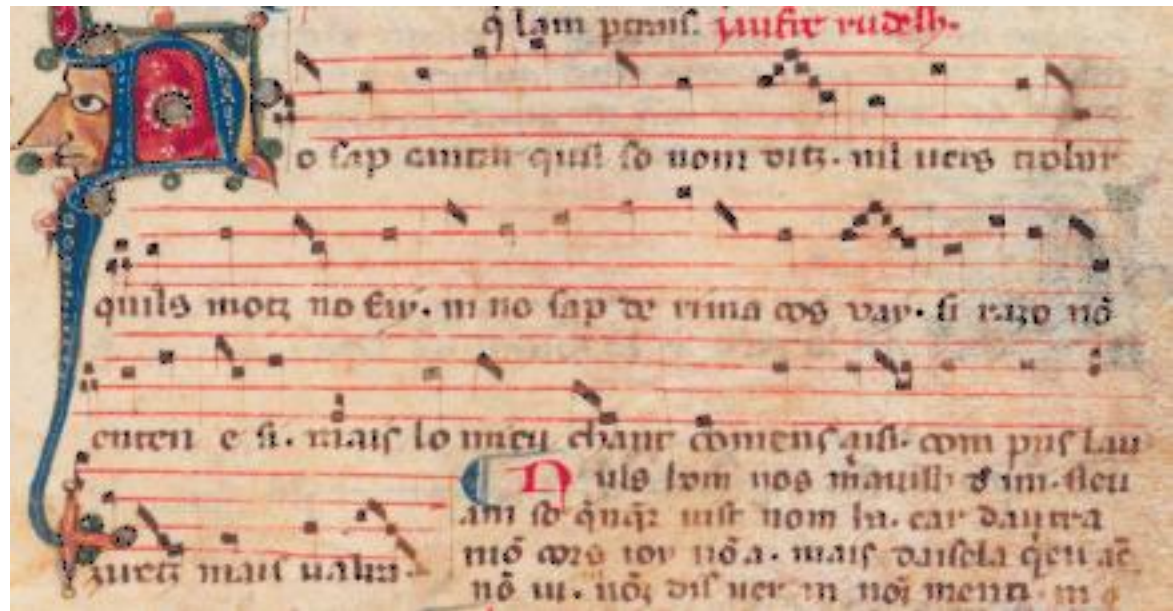 Jaufre rudelh.
No sap cantar quil so nom ditz. nil uers trobar
quils motz no fay. ni no sap de rima cos vay. si razo nõ
enten e si. mais lo mieu chant comens aisi. com pus lau
zuetz mais ualra.
Nuls hom nos mauilh d mi. sieu
am so uist nom ha. car dautra
mõ cors ioy nõ a. mais
nõ ui. dis uer ni menti. ni